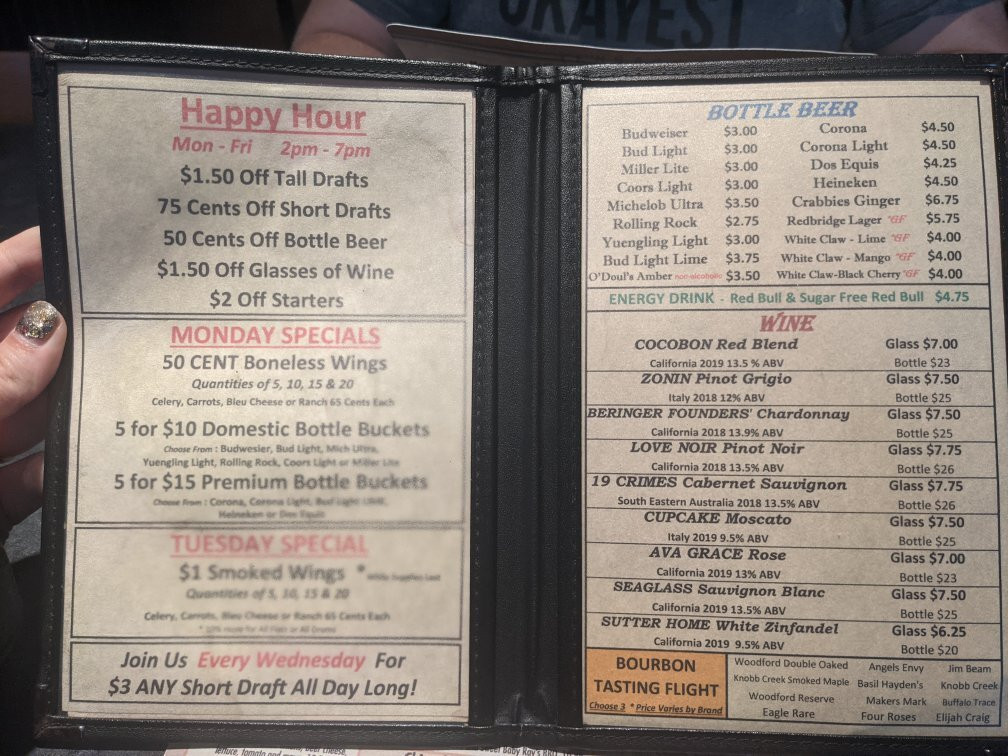 OKAYEST
Happy Hour
Mon - Fri 2pm - 7pm
$1.50 Off Tall Drafts
75 Cents Off Short Drafts
50 Cents Off Bottle Beer
$1.50 Off Glasses of Wine
$2 Off Starters
MONDAY SPECIALS
50 CENT Boneless Wings
Quantities of 5, 10, 15 & 20
Celery, Carrots, Bleu Cheese or Ranch 65 Cents Each
5 for $10 Domestic Bottle Buckets
Choose From : Budwesier, Bud Light, Mich Ultra,
Yuengling Light, Rolling Rock, Coors Light or Miller Lite
5 for $15 Premium Bottle Buckets
Choose From : Corona, Corona Light, Bud Light Lime,
Heineken or Dos Equis
TUESDAY SPECIAL
$1 Smoked Wings *While Supplies Last
Quantities of 5, 10, 15 & 20
Celery, Carrots, Bleu Cheese or Ranch 65 Cents Each
Join Us Every Wednesday For
$3 ANY Short Draft All Day Long!
BOTTLE BEER
Budweiser $3.00 Corona $4.50
Bud Light $3.00 Corona Light $4.50
Miller Lite $3.00 Dos Equis $4.25
Coors Light $3.00 Heineken $4.50
Michelob Ultra $3.50 Crabbies Ginger $6.75
Rolling Rock $2.75 Redbridge Lager *GF $5.75
Yuengling Light $3.00 White Claw - Lime *GF $4.00
Bud Light Lime $3.75 White Claw - Mango *GF $4.00
O'Doul's Amber non-alcoholic $3.50 White Claw-Black Cherry *GF $4.00
ENERGY DRINK - Red Bull & Sugar Free Red Bull $4.75
WINE
COCOBON Red Blend Glass $7.00
California 2019 13.5 % ABV Bottle $23
ZONIN Pinot Grigio Glass $7.50
Italy 2018 12% ABV Bottle $25
BERINGER FOUNDERS' Chardonnay Glass $7.50
California 2018 13.9% ABV Bottle $25
LOVE NOIR Pinot Noir Glass $7.75
California 2018 13.5% ABV Bottle $26
19 CRIMES Cabernet Sauvignon Glass $7.75
South Eastern Australia 2018 13.5% ABV Bottle $26
CUPCAKE Moscato Glass $7.50
Italy 2019 9.5% ABV Bottle $25
AVA GRACE Rose Glass $7.00
California 2019 13% ABV Bottle $23
SEAGLASS Sauvignon Blanc Glass $7.50
California 2019 13.5% ABV Bottle $25
SUTTER HOME White Zinfandel Glass $6.25
California 2019 9.5% ABV Bottle $20
BOURBON
TASTING FLIGHT
Choose 3 *Price Varies by Brand
Woodford Double Oaked Angels Envy Jim Beam
Knobb Creek Smoked Maple Basil Hayden's Knobb Creek
Woodford Reserve Makers Mark Buffalo Trace
Eagle Rare Four Roses Elijah Craig
lettuce, tomato and
Sweet Baby Ray's BBQ